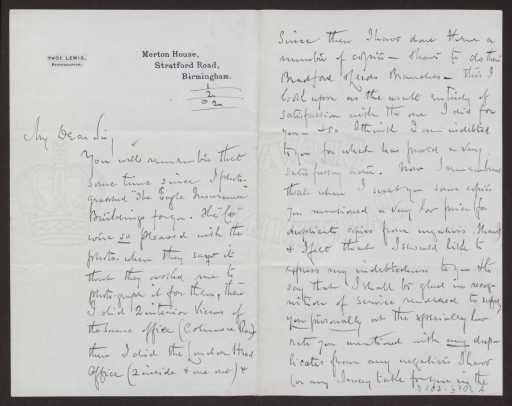 THOS. LEWIS,
PHOTOGRAPHER.
Merton House,
Stratford Road,
Birmingham.
My Dear Sir,
You will remember that
some time since I photo-
graphed the Eagle Insurance
Buildings for you. The Co
were so pleased with the
photo. when they saw it
that they wished me to
photograph it for them, then
I did 2 interior views of
the same office (Colmore Row)
then I did the London Head
Office (2 inside & one out) &
Since then I have done them a
number of copies – I have to do their
Bradford & Leeds Branches – this I
look upon as the result entirely of
satisfaction with the one I did for
you & so I think I am indebted
to you for what has proved a very
satisfactory one. Now I remember
that when I sent you some copies
you mentioned a very low price for
duplicate copies from negatives
& I feel that I should like to
express my indebtedness to you &
say that I shall be glad in recog-
nition of service rendered to supply
you personally at the specially low
rate you mentioned with any dup-
licates from any negatives I have
(or any I may take for you in the